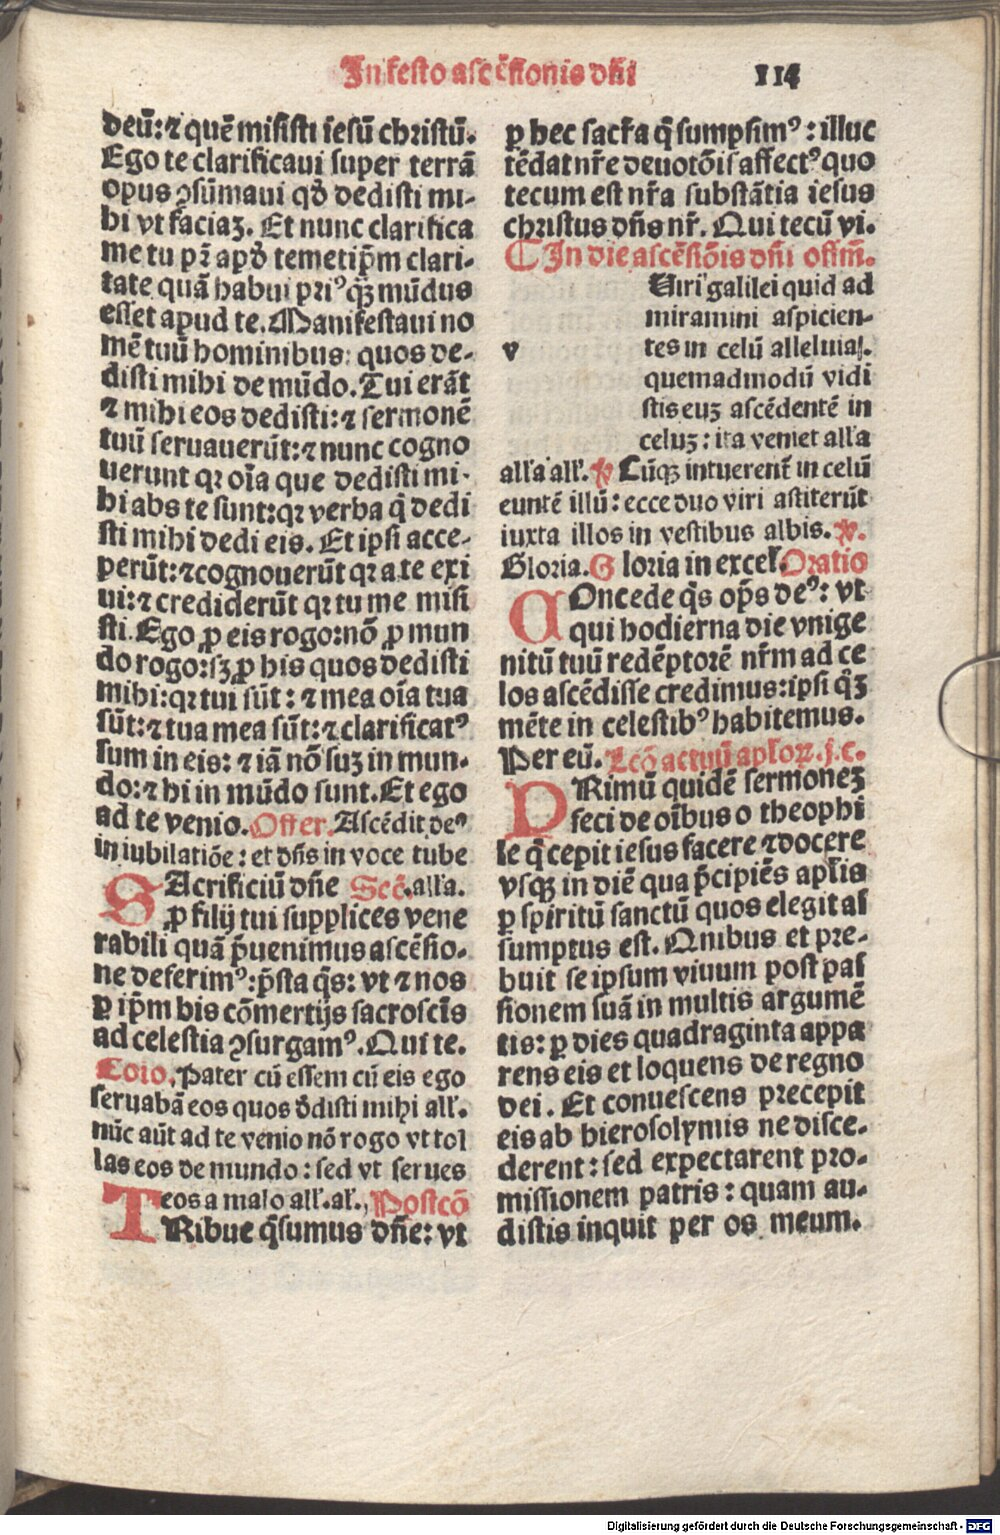 In festo ascēsionis dn̄i 114
deū: ⁊ quē misisti iesū christū.
Ego te clarificaui super terrā
opus ꝯsūmaui qd̄ dedisti mi-
hi vt faciaꝫ. Et nunc clarifica
me tu pr̄ apd̄ temetip̄m clari-
tate quā habui pri⁹qꝫ mūdus
esset apud te. Manifestaui no
mē tuū hominibus: quos de-
disti mihi de mūdo. Tui erāt
⁊ mihi eos dedisti: ⁊ sermonē
tuū seruauerūt: ⁊ nunc cogno
uerunt qꝛ oīa que dedisti mi-
hi abs te sunt: qꝛ verba q̄ dedi
sti mihi dedi eis. Et ipsi acce-
perūt: ⁊ cognouerūt qꝛ a te exi
ui: ⁊ crediderūt qꝛ tu me misi
sti. Ego ꝓ eis rogo: nō ꝓ mun
do rogo: sꝫ ꝓ his quos dedisti
mihi: qꝛ tui sūt: ⁊ mea oīa tua
sūt: ⁊ tua mea sūt: ⁊ clarificat⁹
sum in eis: ⁊ iā nō suꝫ in mun-
do: ⁊ hi in mūdo sunt. Et ego
ad te venio. Offer. Ascēdit de⁹
in iubilatiōe: et dn̄s in voce tube
SAcrificiū dn̄e Sec̄. alľa.
ꝓ filij tui supplices vene
rabili quā p̄uenimus ascēsio-
ne deferim⁹: p̄sta q̄s: vt ⁊ nos
ꝑ ip̄m his cōmertijs sacrosct̄s
ad celestia ꝯsurgam⁹. Qui te.
Cōio. Pater cū essem cū eis ego
seruabā eos quos d̄disti mihi alľ.
nūc aūt ad te venio nō rogo vt tol
las eos de mundo: sed vt serues
eos a malo alľ. aľ. Postcō
TRibue q̄sumus dn̄e: vt
ꝑ hec sacr̄a q̄ sumpsim⁹: illuc
tēdat nr̄e deuotōis affect⁹ quo
tecum est nr̄a substātia iesus
christus dn̄s nr̄. Qui tecū vi.
¶ In die ascēsiōis dn̄i offm̄.
Uiri galilei quid ad
miramini aspicien-
v tes in celū alleluia.
quemadmodū vidi
stis euꝫ ascēdentē in
celuꝫ: ita veniet alľa
alľa alľ. ℣ Cūqꝫ intuerent̄ in celū
euntē illū: ecce duo viri astiterūt
iuxta illos in vestibus albis. ℣.
Gloria. Gloria in excel. Oratio
COncede q̄s op̄s de⁹: vt
qui hodierna die vnige
nitū tuū redēptorē nr̄m ad ce
los ascēdisse credimus: ipsi qꝫ
mēte in celestib⁹ habitemus.
Per eū. Lcō actuū apľoꝝ. j. c.
PRimū quidē sermoneꝫ
feci de oībus o theophi
le q̄ cepit iesus facere ⁊ docere
vsqꝫ in diē qua p̄cipiēs apľis
ꝑ spiritū sanctū quos elegit as
sumptus est. Quibus et pre-
buit se ipsum viuum post pas
sionem suā in multis argumē
tis: ꝑ dies quadraginta appa
rens eis et loquens de regno
dei. Et conuescens precepit
eis ab hierosolymis ne disce-
derent: sed expectarent pro-
missionem patris: quam au-
distis inquit per os meum.
Digitalisierung gefördert durch die Deutsche Forschungsgemeinschaft - DFG